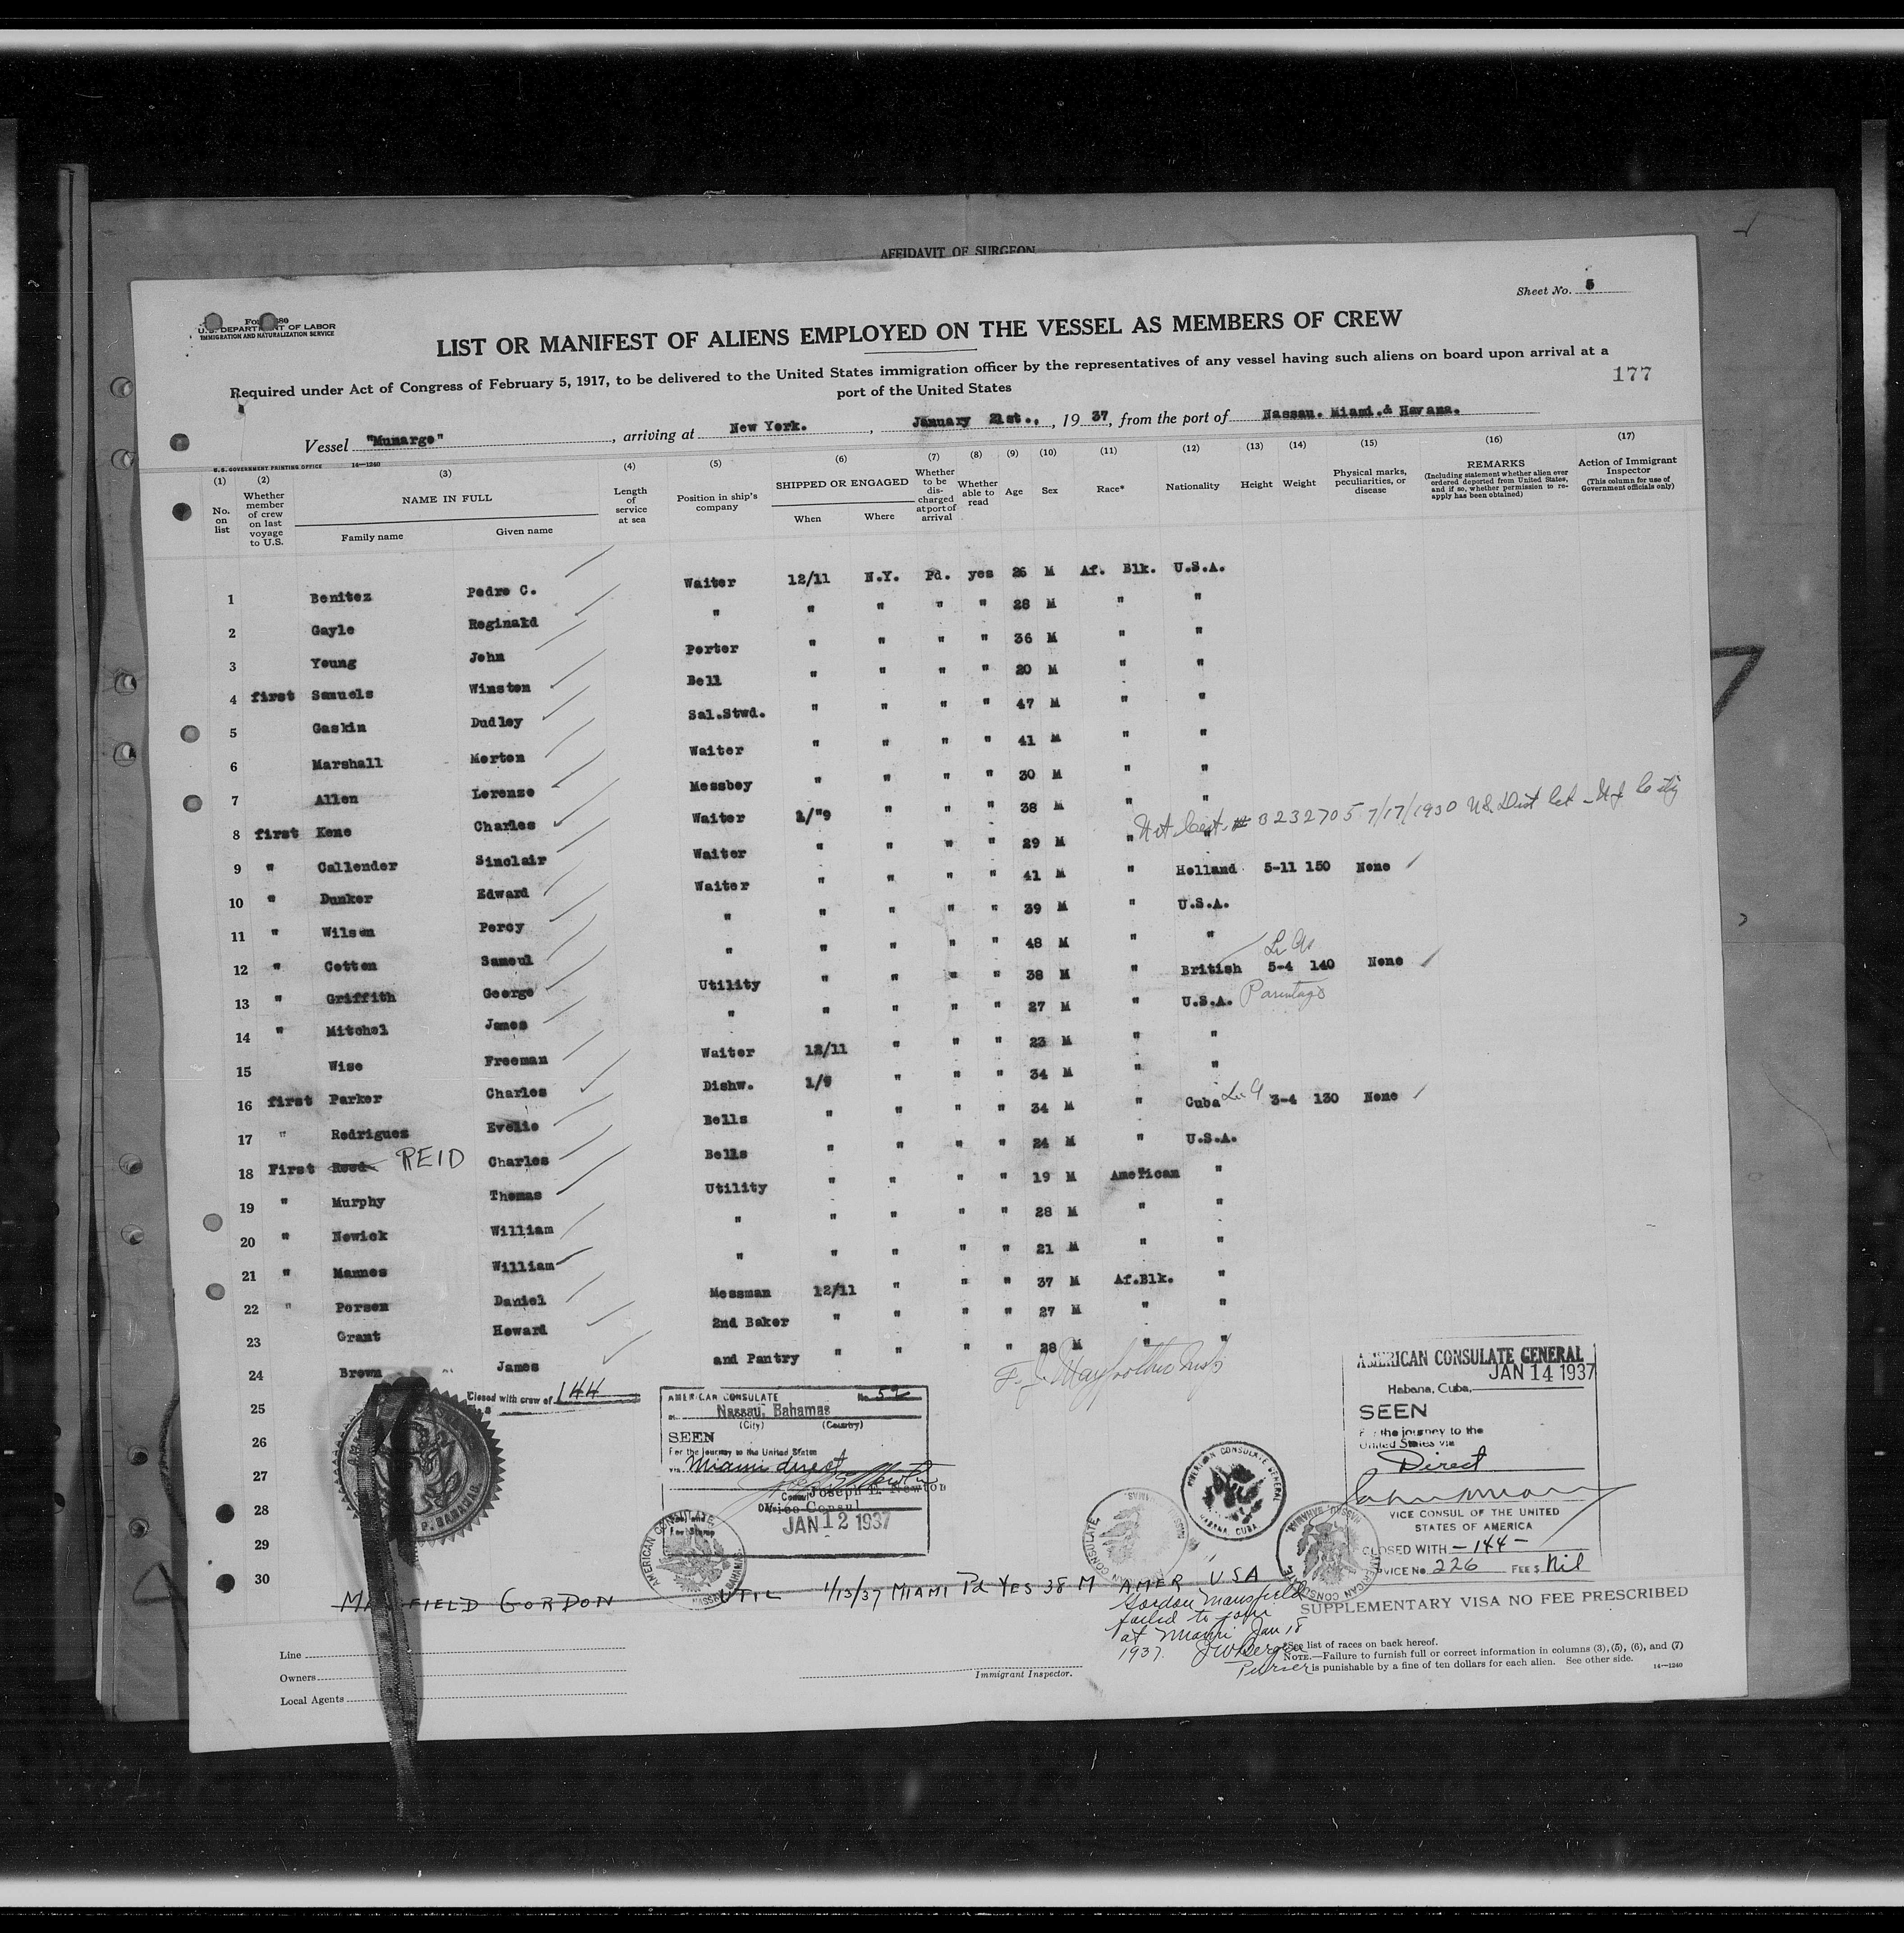 AFFIDAVIT OF SURGEON
Sheet No. 5
U.S. DEPARTMENT OF LABOR
IMMIGRATION AND NATURALIZATION SERVICE
LIST OR MANIFEST OF ALIENS EMPLOYED ON THE VESSEL AS MEMBERS OF CREW
Required under Act of Congress of February 5, 1917, to be delivered to the United States immigration officer by the representatives of any vessel having such aliens on board upon arrival at a
port of the United States
177
Vessel "Munargo", arriving at New York., January 21st., 1937, from the port of Nassau. Miami.& Havana.
U.S. GOVERNMENT PRINTING OFFICE 14—1240
(1) (2) (3) (4) (5) (6) (7) (8) (9) (10) (11) (12) (13) (14) (15) (16) (17)
No. on list
Whether member of crew on last voyage to U.S.
NAME IN FULL
Family name Given name
Length of service at sea
Position in ship's company
SHIPPED OR ENGAGED
When Where
Whether to be discharged at port of arrival
Whether able to read
Age Sex Race* Nationality Height Weight
Physical marks, peculiarities, or disease
REMARKS
(Including statement whether alien ever ordered deported from United States, and if so, whether permission to reapply has been obtained)
Action of Immigrant Inspector
(This column for use of Government officials only)
1 Benitez Pedro C. Waiter 12/11 N.Y. Pd. yes 26 M Af. Blk. U.S.A.
2 Gayle Reginald " " " " " 28 M " "
3 Young John Porter " " " " 36 M " "
4 first Samuels Winston Bell " " " " 20 M " "
5 Gaskin Dudley Sal.Stwd. " " " " 47 M " "
6 Marshall Morton Waiter " " " " 41 M " "
7 Allen Lorenzo Messboy " " " " 30 M " "
8 first Kene Charles Waiter 1/"9 " " " 38 M " " Nat Cert # 3232705 7/17/1930 US Dist Ct - N.J.
9 " Callender Sinclair Waiter " " " " 29 M " "
10 " Dunker Edward Waiter " " " " 41 M " Holland 5-11 150 None
11 " Wilson Percy " " " " " 39 M " U.S.A.
12 " Cotton Samoul " " " " " 48 M " "
13 " Griffith George Utility " " " " 38 M " British 5-4 140 None
14 " Mitchel James " " " " " 27 M " U.S.A. Parentage
15 Wise Freeman Waiter 12/11 " " " 23 M " "
16 first Parker Charles Dishw. 1/9 " " " 34 M " "
17 " Rodrigues Evelio Bells " " " " 34 M " Cuba 3-4 130 None
18 First Reed REID Charles Bells " " " " 24 M " U.S.A.
19 " Murphy Thomas Utility " " " " 19 M American "
20 " Newick William " " " " " 28 M " "
21 " Mannes William " " " " " 21 M " "
22 " Person Daniel Messman 12/11 " " " 37 M Af.Blk. "
23 Grant Howard 2nd Baker " " " " 27 M " "
24 Brown James and Pantry " " " " 28 M " "
25
26
27
28
29
30
Closed with crew of 144
AMERICAN CONSULATE No. 52
Nassau, Bahamas
(City) (Country)
SEEN
For the journey to the United States
via Miami direct
Joseph E. Newton
Vice Consul
JAN 12 1937
AMERICAN CONSULATE
NASSAU, BAHAMAS.
AMERICAN CONSULATE GENERAL
HABANA, CUBA
AMERICAN CONSULATE GENERAL
JAN 14 1937
Habana, Cuba,
SEEN
For the journey to the
United States via
Direct
VICE CONSUL OF THE UNITED
STATES OF AMERICA
CLOSED WITH - 144 -
SERVICE No. 226 FEE $ Nil
SUPPLEMENTARY VISA NO FEE PRESCRIBED
MANSFIELD GORDON UTIL 1/13/37 MIAMI Pd YES 38 M AMER USA
Gordon Mansfield
failed to join
at Miami Jan 18
1937.
Purser
Line
Owners
Local Agents
Immigrant Inspector.
*See list of races on back hereof.
NOTE.—Failure to furnish full or correct information in columns (3), (5), (6), and (7)
is punishable by a fine of ten dollars for each alien. See other side.
14—1240